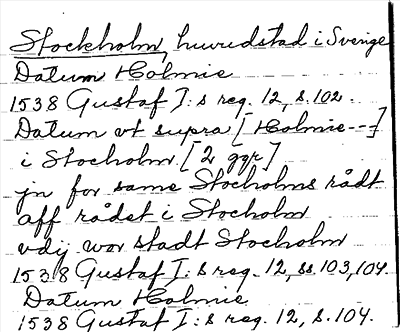 Stockholm, huvudstad i Sverige
Datum Holmie
1538 Gustaf I:s reg. 12, s. 102.
Datum vt supra [Holmie---]
i Stocholm [2 ggr]
jn for same Stocholms rådt
aff rådet i Stocholm
vdij wor stadt Stocholm
1538 Gustaf I:s reg. 12, ss. 103, 104.
Datum Holmie
1538 Gustaf I:s reg. 12, s. 104.